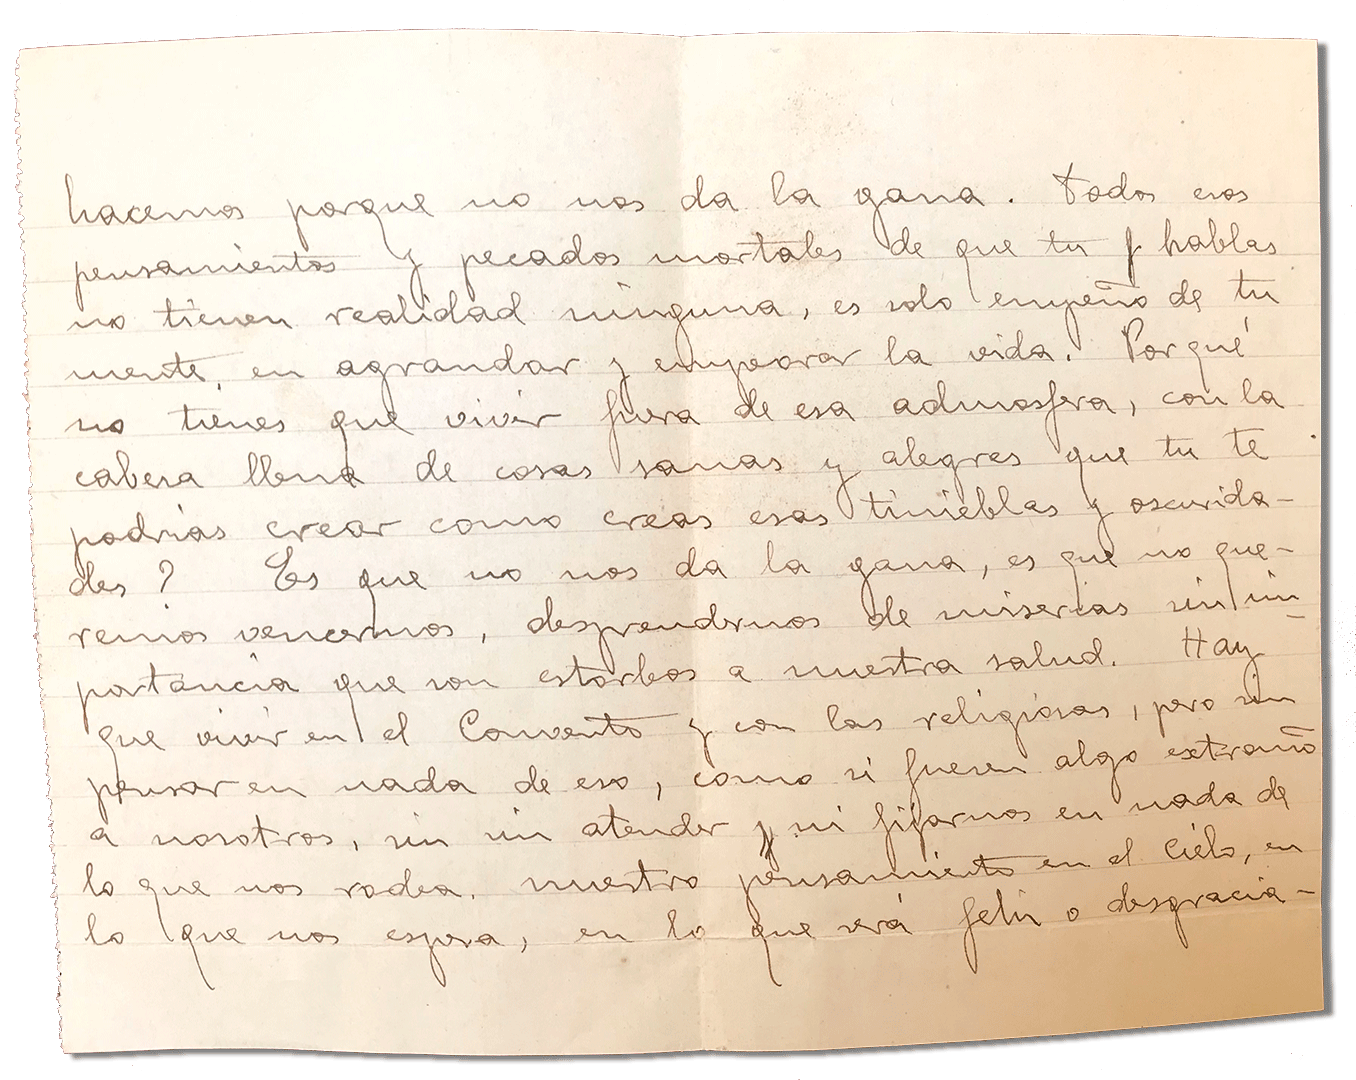 hacemos porque no nos da la gana. Todos esos
pensamientos y pecados mortales de que tu hablas
no tienen realidad ninguna, es solo empeño de tu
mente, en agrandar y empeorar la vida. Por qué
no tienes que vivir fuera de esa admosfera, con la
cabesa llena de cosas sanas y alegres que tu te
podrias crear como creas esas tinieblas y oscurida-
des? Es que no nos da la gana, es que no que-
remos vencernos, desprendernos de miserias sin im-
portancia que son estorbos a nuestra salud. Hay
que vivir en el Convento y con las religiosas, pero sin
pensar en nada de eso, como si fuesen algo extraño
a nosotros, sin atender y ni fijarnos en nada de
lo que nos rodea. nuestro pensamiento en el Cielo, en
lo que nos espera, en lo que será feliz o desgracia-